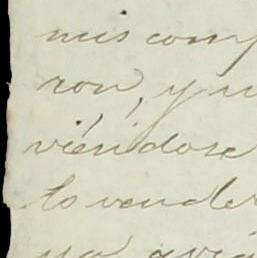 mis comp
ron, y n
viéndose
lo vender